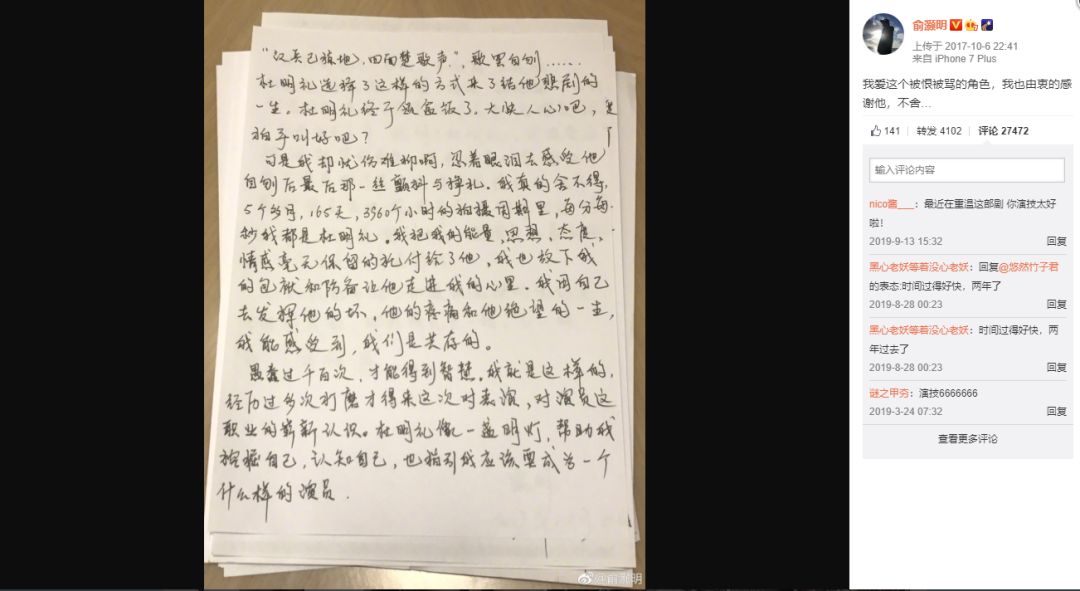 “汉兵已掠地，四面楚歌声。”，歌罢自刎……
杜明礼选择了这样的方式来了结他悲剧的
一生。杜明礼终于领盒饭了，大快人心吧，是
拍手叫好吧？
可是我却忧伤难抑啊，忍着眼泪去感受他
自刎后最后那一丝颤抖与挣扎。我真的舍不得，
5个多月，165天，3960个小时的拍摄周期里，每分每
秒我都是杜明礼。我把我的能量，思想，态度，
情感毫无保留的托付给了他，我也放下我
的包袱和防备让他走进我的心里。我用自己
去发挥他的坏，他的疼痛和他绝望的一生，
我能感受到，我们是共存的。
愚蠢过千百次，才能得到智慧。我就是这样的，
经历过多次打磨才得来这次对表演，对演员这
职业的崭新认识。杜明礼像一盏明灯，帮助我
挖掘自己，认知自己，也指引我应该要成为一个
什么样的演员。
@俞灏明
俞灏明
上传于 2017-10-6 22:41
来自 iPhone 7 Plus
我爱这个被恨被骂的角色，我也由衷的感
谢他，不舍...
141 转发 4102 评论 27472
输入评论内容
nico酱___：最近在重温这部剧 你演技太好
啦！
2019-9-13 15:32 回复
黑心老妖等着没心老妖：回复@悠然竹子君
的表态:时间过得好快，两年了
2019-8-28 00:23 回复
黑心老妖等着没心老妖：时间过得好快，两
年过去了
2019-8-28 00:23 回复
谜之甲夯：演技6666666
2019-3-24 07:32 回复
查看更多评论